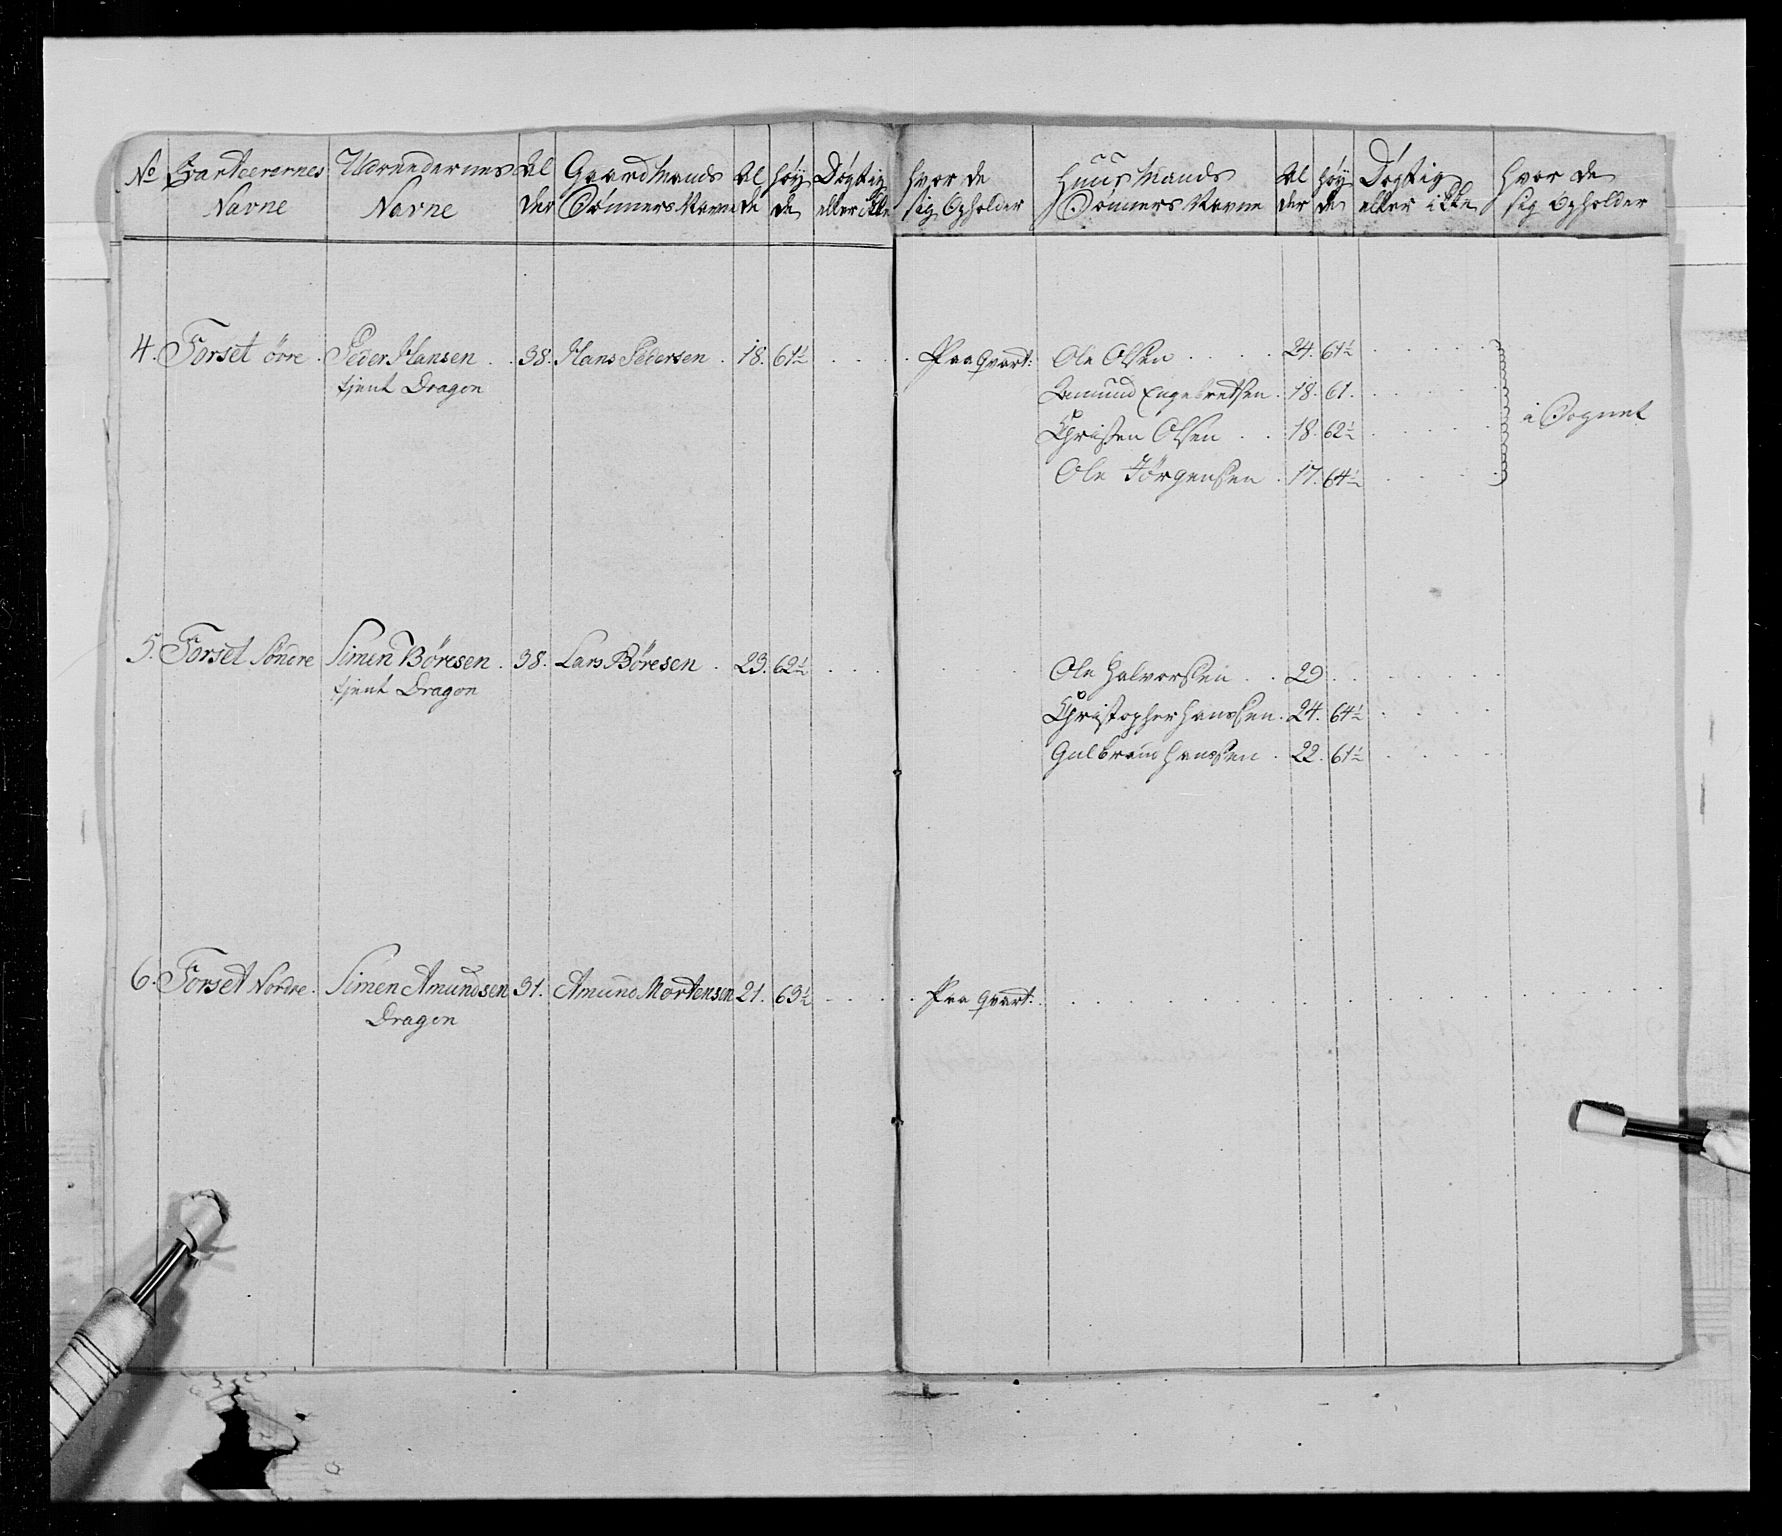 No Qvarteerernes Navne Udrundernes Navne Al der Gaardmands Sönners Navne Al de höy de Dögtig eller ikke hvor de sig Opholder Huusmands Sönners Navne Al der höy de Dögtig eller ikke hvor de sig Opholder
4. Forset övre. Peder Hansen . . 38. Hans Pedersen . 18. 61½ . . . . Paa qvart: Ole Olsen . . . . 24. 61½
tjent Dragon Amund Engebretsen . 18. 61.
Christen Olsen . . 18. 62½ i Sognet
Ole Jörgensen . 17. 64½
5. Forset Söndre Simen Böresen . 38. Lars Böresen . 23. 62½ . . . Ole Halvorsen . . 29
tjent Dragon Christopher Hanssen . 24. 64½
Gulbrand Hanssen . 22. 61½
6. Forset Nordre. Simen Amundsen 31. Amund Mortensen 21. 63½ . . . . Paa qvart:
Dragon